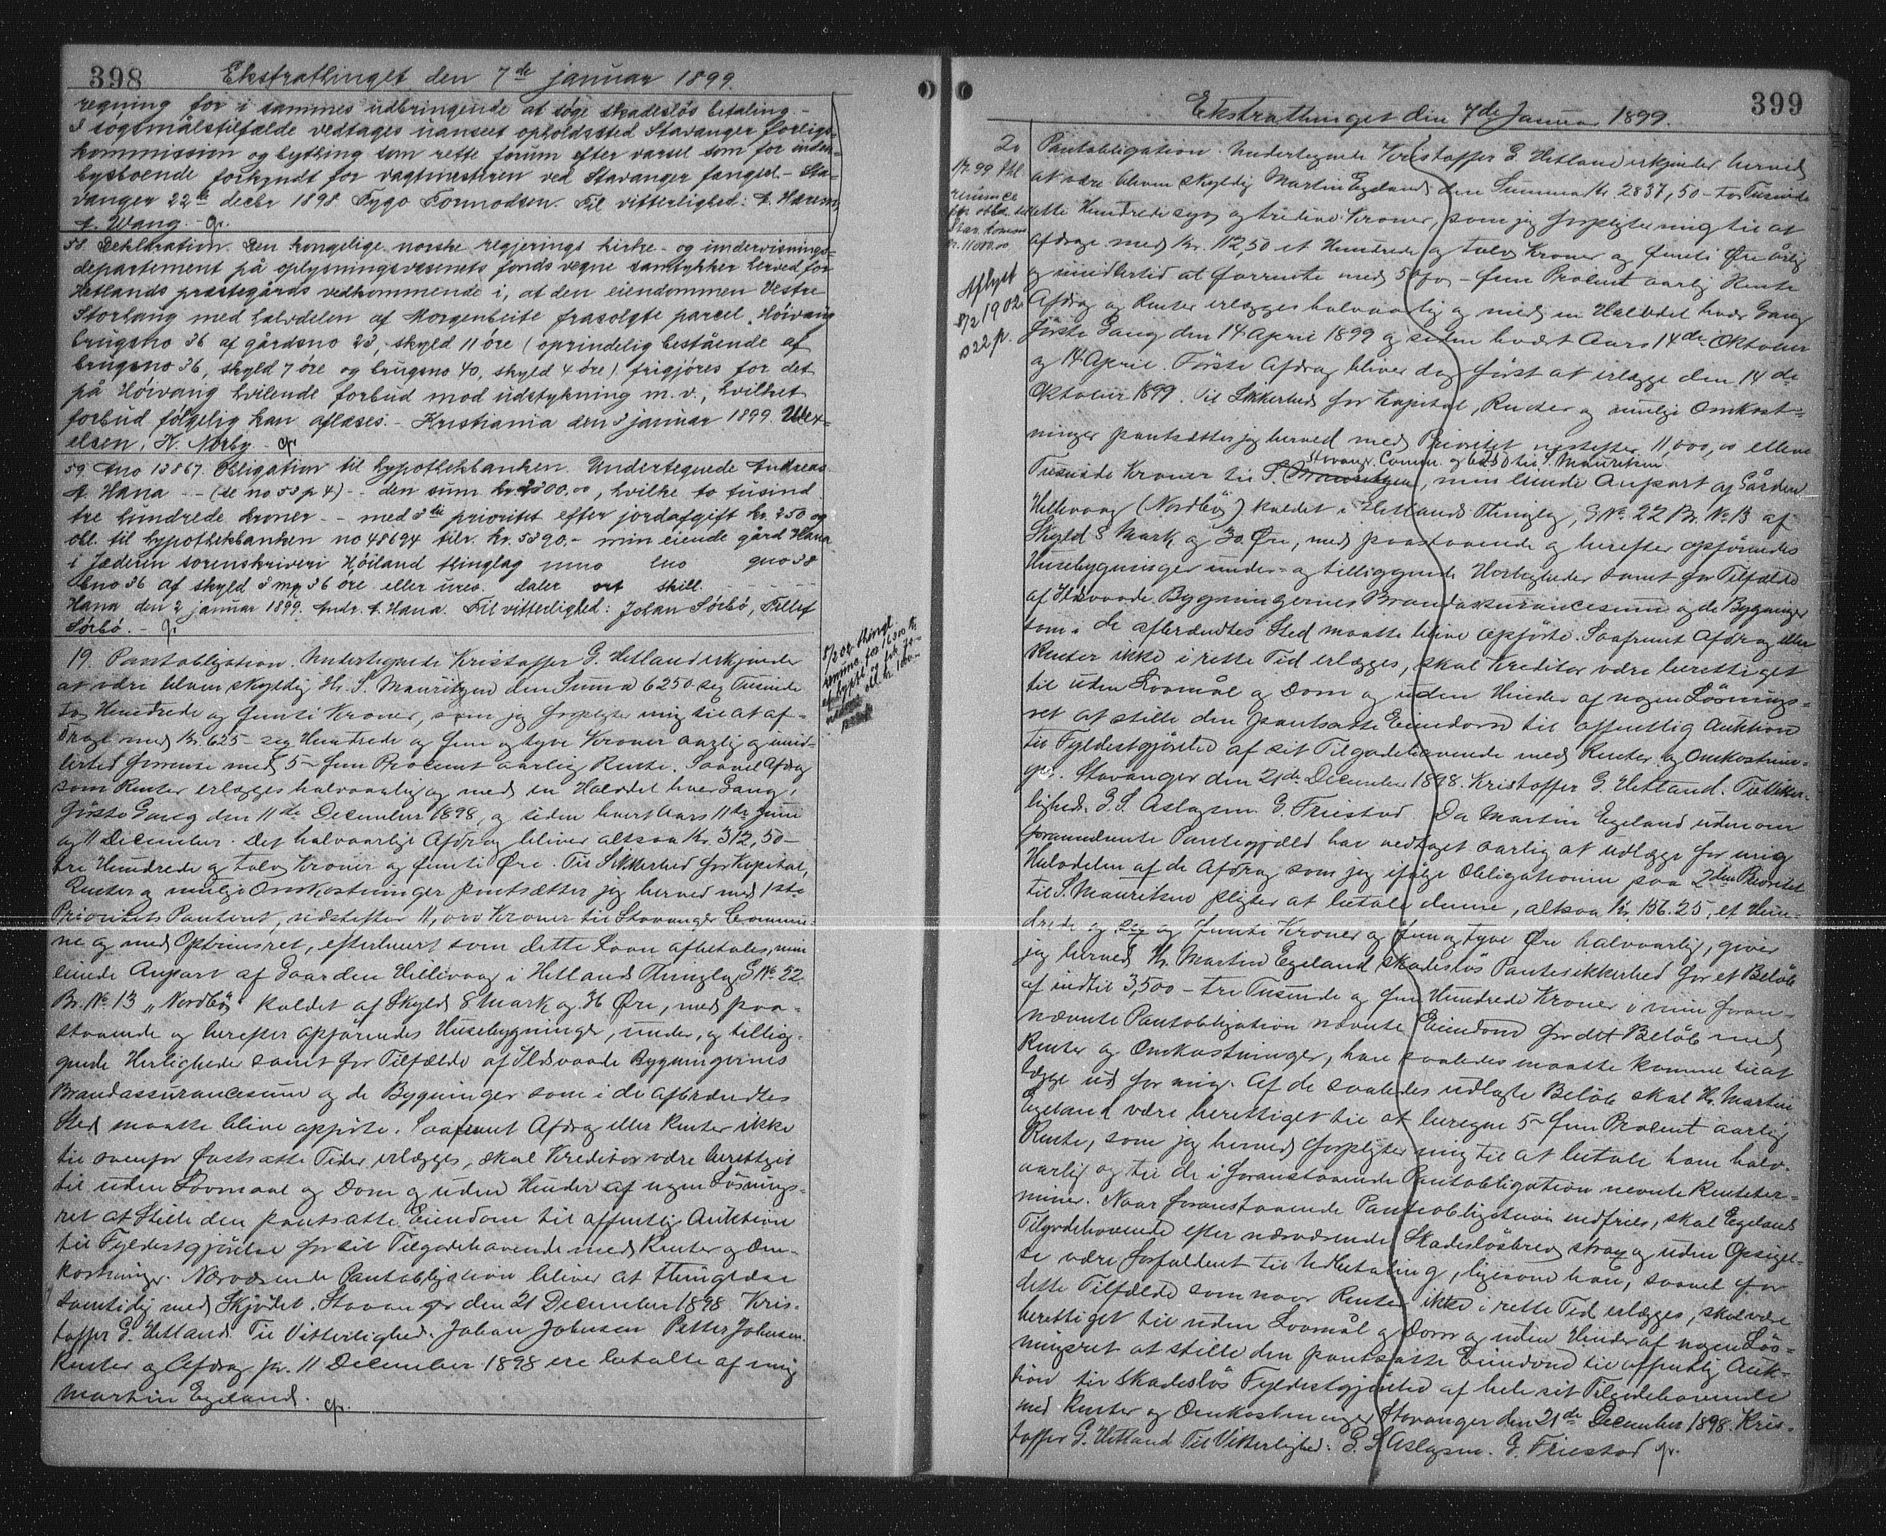 398
Ekstrathinget den 7de januar 1899.
regning for i sammes udbringende at søge skadesløs betaling.-
I søgsmålstilfælde vedtages uanseet opholdssted Stavanger forligs-
kommission og bything som rette forum efter varsel som for inden-
bysboende forkyndt for vagtmesteren ved Stavanger fængsel - Sta-
vanger 22de decbr 1898 Tygo Tormodsen. Til vitterlighed: A. Hansen,
A. Wang. gr.
58. Deklaration. Den kongelige norske regjerings kirke- og undervisnings-
departement på oplysningsvæsenets fonds vegne samtykker herved for
Hetlands præstegårds vedkommende i, at den eiendommen Vestre
Storhaug med halvdelen af Morgenbeite frasolgte parcel "Høivang
brugsno 36 af gårdsno 23, skyld 11 øre (oprindelig bestående af
brugsno 36, skyld 7 øre og brugsno 40, skyld 4 øre) frigjøres for det
på Høivang hvilende forbud mod udstykning m. v., hvilket
forbud følgelig kan aflæses. - Kristiania den 3 januar 1899. Wex-
elsen, K. Nørby. gr
59. Ano 13867. Obligation til hypothekbanken. Undertegnede Andreas
A. Hana -- (se no 53 p 4) -- den sum kr 2300.00, hvilke to tusind
tre hundrede kroner -- med 3die prioritet efter jordafgift kr. 250 og
obl. til hypothekbanken no 48694 tilv. kr. 5390.- min eiende gård Hana
i Jæderen sorenskriveri Høiland thinglag mno lno gno 38
bno 36 af skyld 3 mrk 36 øre eller ures. daler ort skill.
Hana den 2 januar 1899. Andr. A. Hana. Til vitterlighed: Johan Sørbø, Tellef
Sørbø. - gr
19. Pantobligation. Undertegnede Kristoffer G. Hetland erkjender
at være bleven skyldig Hr. S. Mauritzen den Suma 6250 seg Tusinde
to Hundrede og femti Kroner, som jeg forpligter mig til at af-
drage med Kr. 625 - seg Hundrede og fem og tyve Kroner aarlig og imid-
lertid forrente med 5 - fem Procent aarlig Rente. Saavel Afdrag
som Renter erlægges halvaarlig og med en Halvdel hver Gang,
første Gang den 11te December 1898, og siden hvert Aars 11te Juni
og 11 December. Det halvaarlige Afdrag bliver altsaa Kr. 312,50 -
tre Hundrede og tolv Kroner og femti Øre. Til Sikkerhed for Kapital,
Renter og mulige Omkostninger pantsætter jeg herved med 1ste
Prioritets Panteret, næstefter 11,000 Kroner til Stavanger Commu-
ne og med Optrinsret, efterhvert som dette Laan afbetales, min
eiende Anpart af Gaarden Hillevaag i Hetland Thinglag G No. 22
Br. No 13 "Nordbø" kaldet af Skyld 8 Mark og 36 Øre, med paa-
staaende og herefter opførendes Husebygninger, under, og tillig-
gende Herligheder samt for Tilfælde af Ildsvaade Bygningernes
Brandassurancesum og de Bygninger som i de afbrændtes
Sted maatte blive opførte. Saafremt Afdrag eller Renter ikke
til ovenfor fastsatte Tider erlægges, skal Kreditor være berettiget
til uden Lovmaal og Dom og uden Hinder af nogen Løsnings-
ret at stille den pantsatte Eiendom til offentlig Auktion
til Fyldestgjørelse for sit Tilgodehavende med Renter og Om-
kostninger. Nærværende Pantobligation bliver at thinglæse
samtidig med Skjødet. Stavanger den 21 December 1898. Kris-
toffer G. Hetland. Til Vitterlighed. Johan Johnsen Petter Johnsen.
Renter og Afdrag pr. 11 December 1898 ere betalte af mig
Martin Egeland. gr.
399
Ekstrathinget den 7de Januar 1899.
20
Aflyst
8/2 1902
Pantobligation. Undertegnede Kristoffer G. Hetland erkjender herved
at være bleven skyldig Martin Egeland den Summa Kr. 2837,50 - to Tusinde
otte Hundrede syv og tredive Kroner, som jeg forpligter mig til at
afdrage med Kr. 112,50 et Hundrede og tolv Kroner og femti Øre årlig
og imidlertid at forrente med 5% - fem Procent aarlig Rente
Afdrag og Renter erlægges halvaarlig og med en Halvdel hver Gang
første Gang den 14 April 1899 og siden hvert Aars 14de Oktober
og 14 April. Første Afdrag bliver dog først at erlægge den 14de
Oktober 1899. Til Sikkerhed for Kapital, Renter og mulige Omkost-
ninger pantsætter jeg herved med Prioritet næstefter 11,000,00 elleve
Stavanger Commn. og 6250 til S. Mauritzen
Tusinde Kroner til S. Mauritzen, min eiende Anpart af Gården
Hillevaag (Nordbø) kaldet i Hetlands Thinglag, G No. 22 Br. No 13 af
Skyld 8 Mark og 30 Øre, med paastaaende og herefter opførendes
Husebygninger under- og tilliggende Herligheder samt for Tilfælde
af Ildsvaade Bygningernes Brandassurancesum og de Bygninger
som i de afbrændtes Sted maatte blive opførte. Saafremt Afdrag eller
Renter ikke i rette Tid erlægges, skal Kreditor være berettiget
til uden Lovmål og Dom og uden Hinder af nogen Løsnings-
ret at stille den pantsatte Eiendom til offentlig Auktion
til Fyldestgjørelse af sit Tilgodehavende med Renter og Omkostnin-
ger. Stavanger den 21de December 1898. Kristoffer G. Hetland. Til Vitter-
lighed. G. S. Aslagsen. G. Friestad. Da Martin Egeland uden om
forannævnte Pantegjæld har vedtaget aarlig at udlægge for mig
Halvdelen af de Afdrag som jeg ifølge Obligationen paa 2den Prioritet
til S. Mauritzen pligter at betale denne, altsaa Kr. 156.25, et Hun-
drede og seg og femti Kroner og fem og tyve Øre halvaarlig, giver
jeg herved Hr. Martin Egeland skadesløs Pantesikkerhed for et Beløb
af indtil 3,500 - tre Tusinde og fem Hundrede Kroner i min foran-
nævnte Pantobligation nævnte Eiendom for det Beløb med
Renter og Omkostninger, han saaledes maatte komme til at
lægge ud for mig. Af de saaledes udlagte Beløb skal Hr. Martin
Egeland være berettiget til at beregne 5 - fem Procent aarlig
Rente, som jeg herved forpligter mig til at betale ham halv-
aarlig og til de i foranstaaende Pantobligation nevnte Renteter-
miner. Naar foranstaaende Panteobligation indfries, skal Egelands
Tilgodehavende efter nærværende Skadesløsbrev strax og uden Opsigel-
se være forfaldent til Udbetaling, ligesom han, saavel for
dette Tilfælde som naar Renter ikke i rette Tid erlægges, skal være
berettiget til uden Lovmål og Dom og uden Hinder af nogen Løs-
ningsret at stille den pantsatte Eiendom til offentlig Auk-
tion til skadesløs Fyldestgjørelse af hele sit Tilgodehavende
med Renter og Omkostninger Stavanger den 21de December 1898. Kris-
toffer G. Hetland Til Vitterlighed: G. S. Aslagsen. G. Friestad gr.